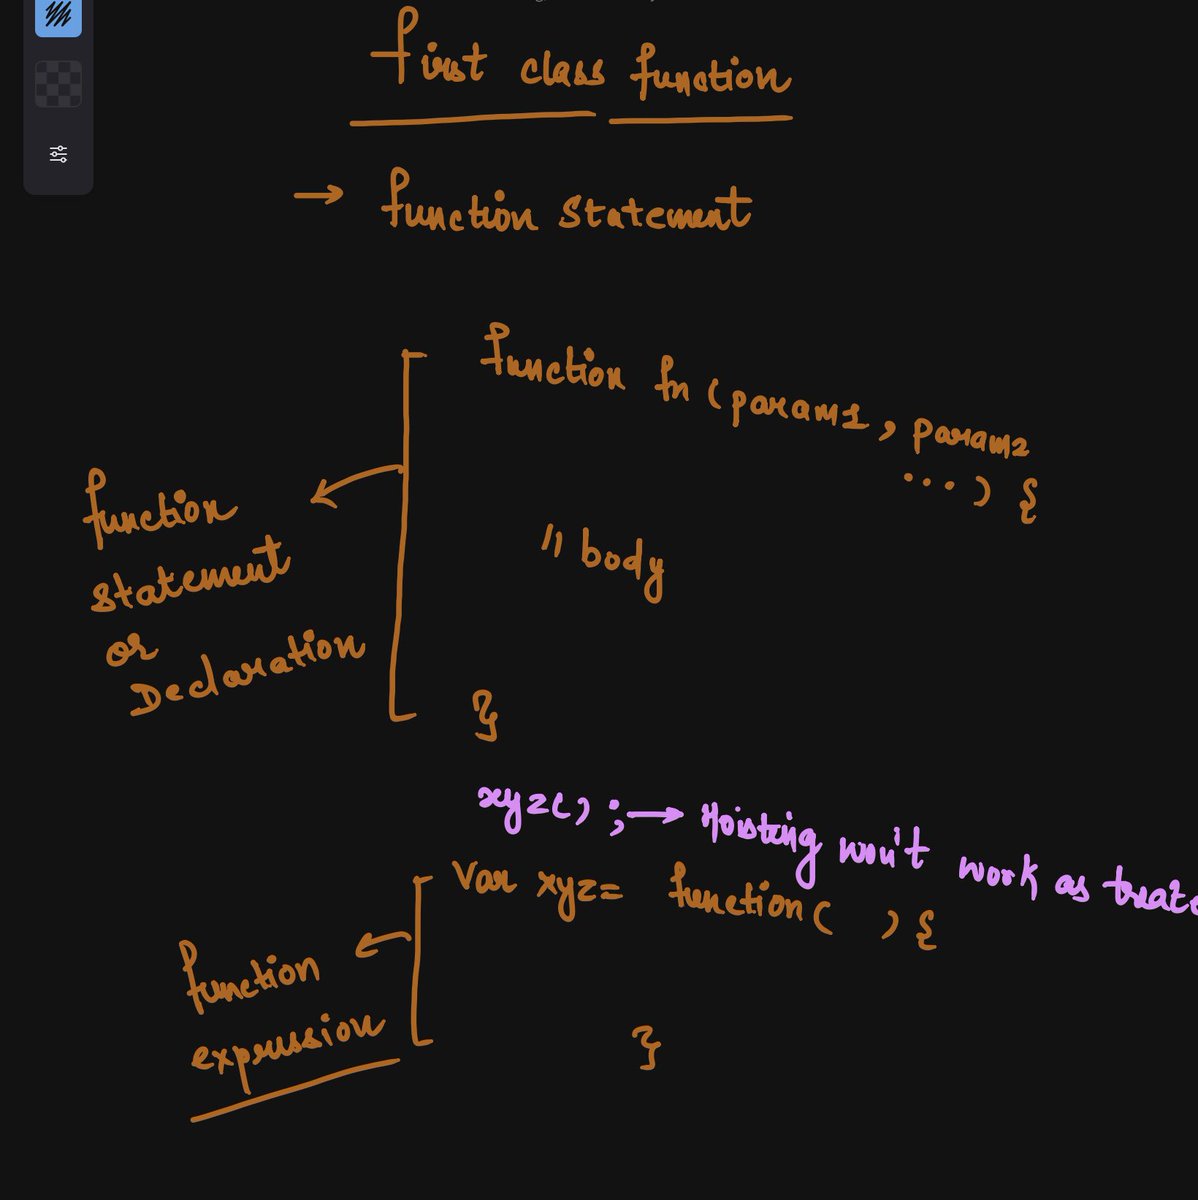 First class function
→ function Statement
function fn (param1, param2
...) {
// body
}
function
statement
or
Declaration
xyz(); → Hoisting won't work as
var xyz = function( ) {
}
function
expression